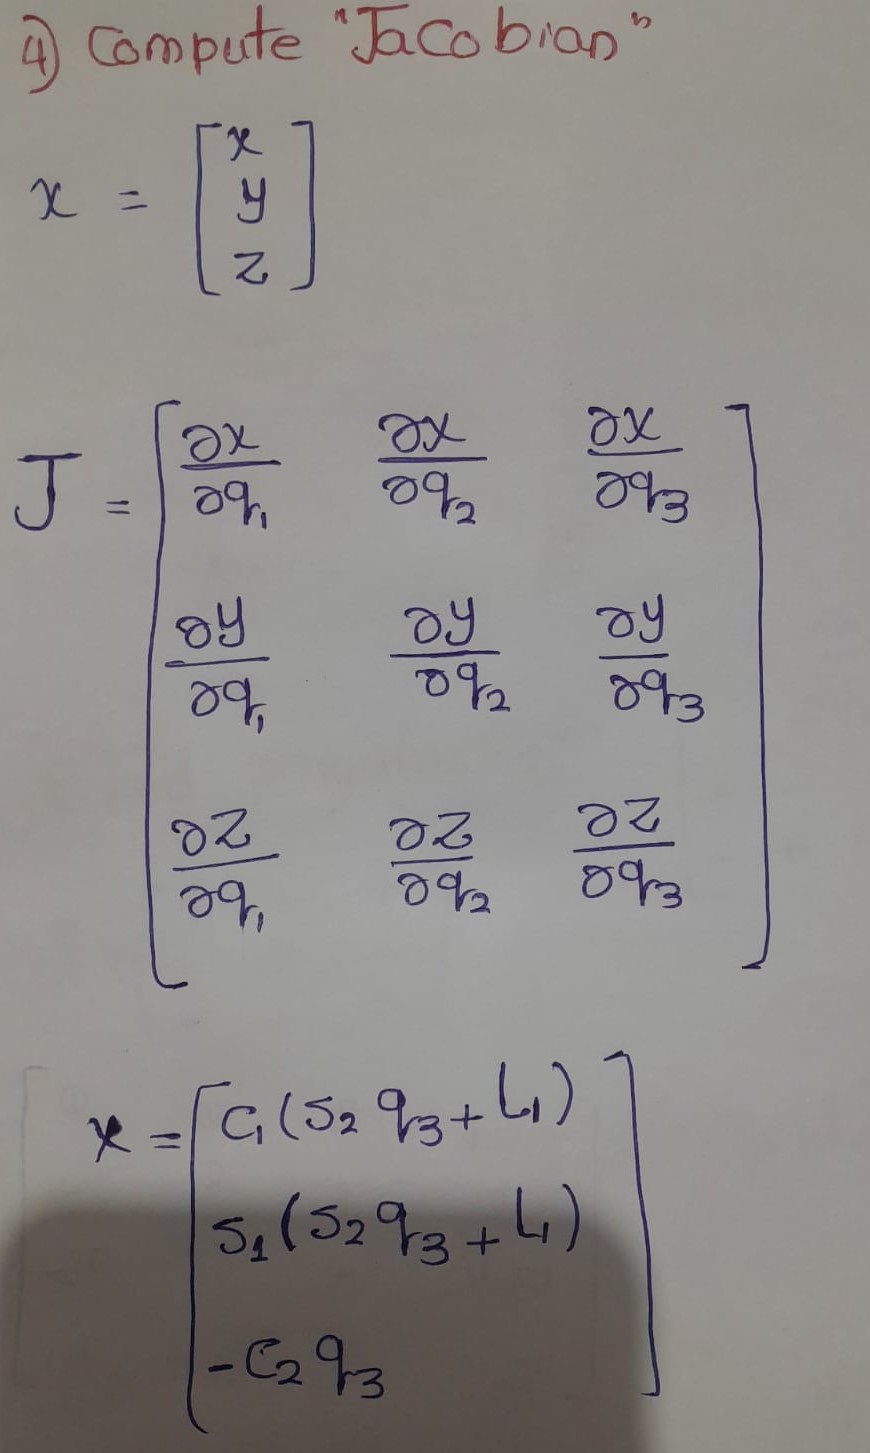 4) Compute "Jacobian"
x = [x
y
z]
J = [∂x/∂q₁ ∂x/∂q₂ ∂x/∂q₃
∂y/∂q₁ ∂y/∂q₂ ∂y/∂q₃
∂z/∂q₁ ∂z/∂q₂ ∂z/∂q₃]
x = [C₁(S₂q₃+L₁)
S₁(S₂q₃+L₁)
-C₂q₃]